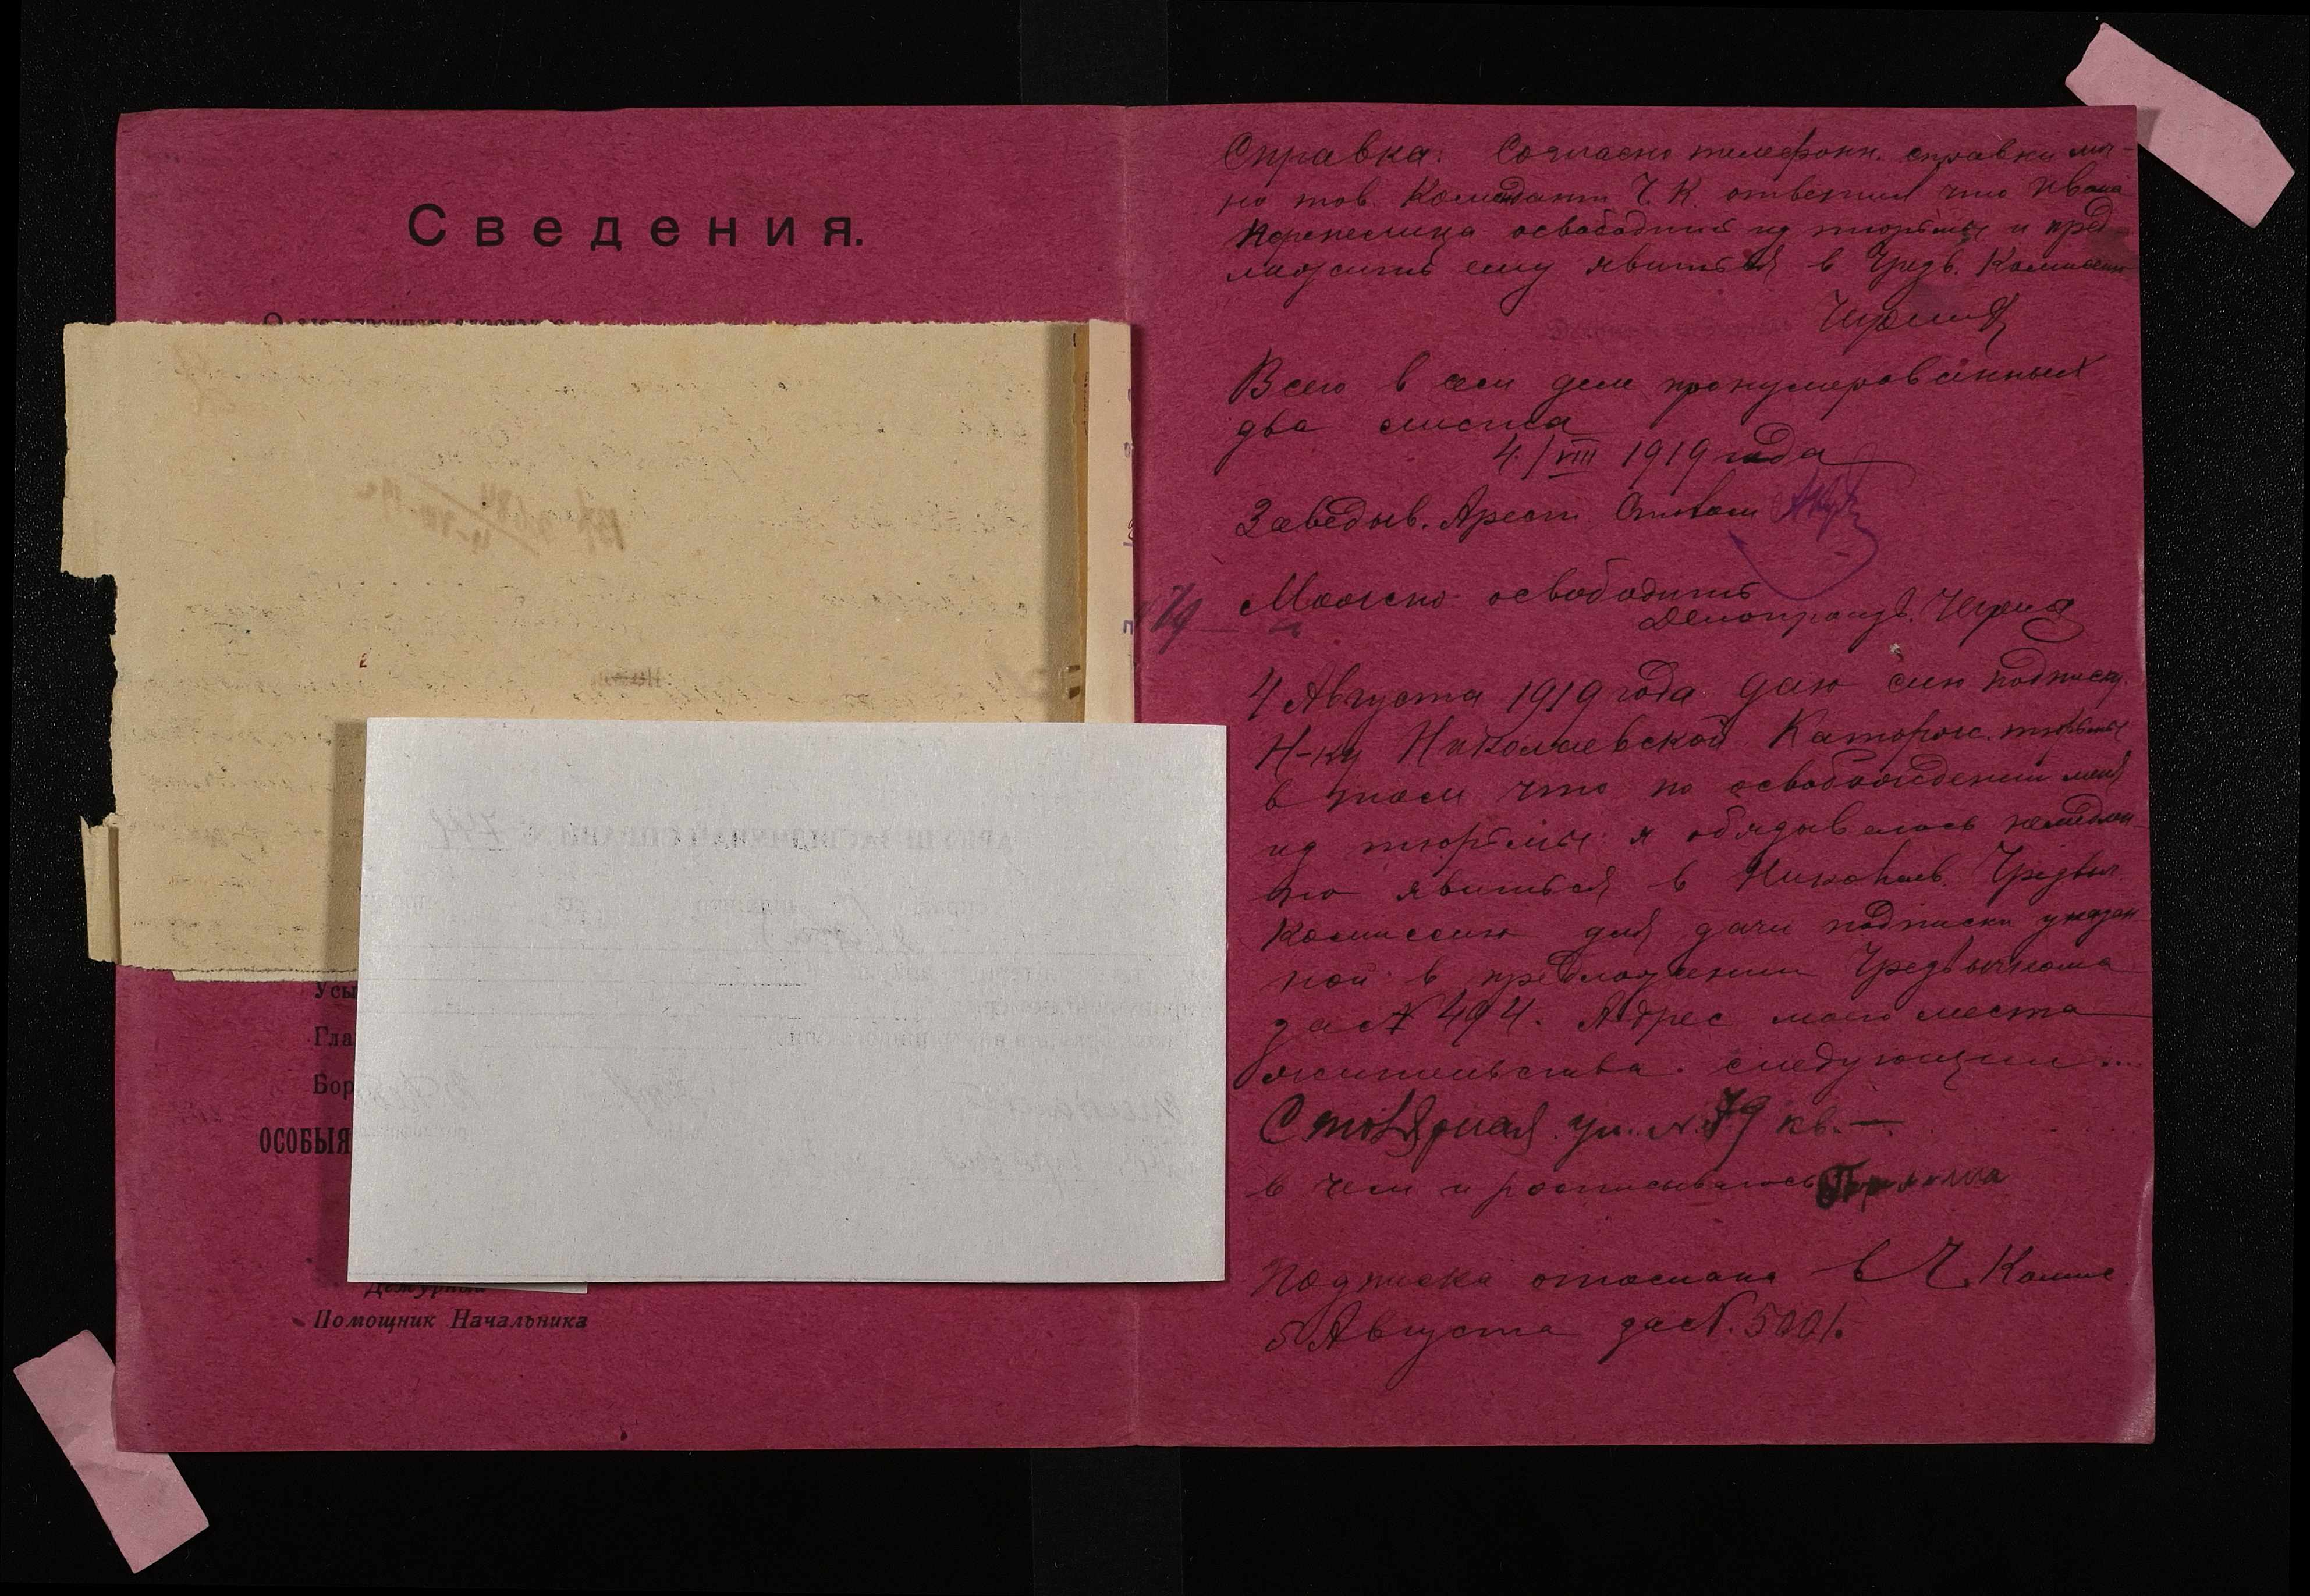 Сведения.
Усы
Гла
Бор
ОСОБЫЯ
Дежурный
Помощник Начальника
Справка: Согласно телефонн. справки лич-
но тов. Комендант Ч. К. ответил что Ивана
освободить из тюрьмы и пред-
ложить ему явиться в Чрезв. Комиссию
Всего в сем деле пронумерованных
два листа
4/VIII 1919 года
Заведыв. Арест
Можно освободить
Делопроизв.
4 Августа 1919 года даю сию подписку
Н-ку Николаевской Каторж. тюрьмы
в том что по освобождении меня
из тюрьмы я обязываюсь немедлен-
но явиться в Николаев. Чрезвыч.
Комиссию для дачи подписки указан-
ной в предложении Чрезвычкома
за № 494. Адрес моего места
жительства следующий ...
Столярная ул. № 79 кв. —
в чем и росписываюсь
Подписка отослана в Ч. Комис.
5 Августа за № 5001.